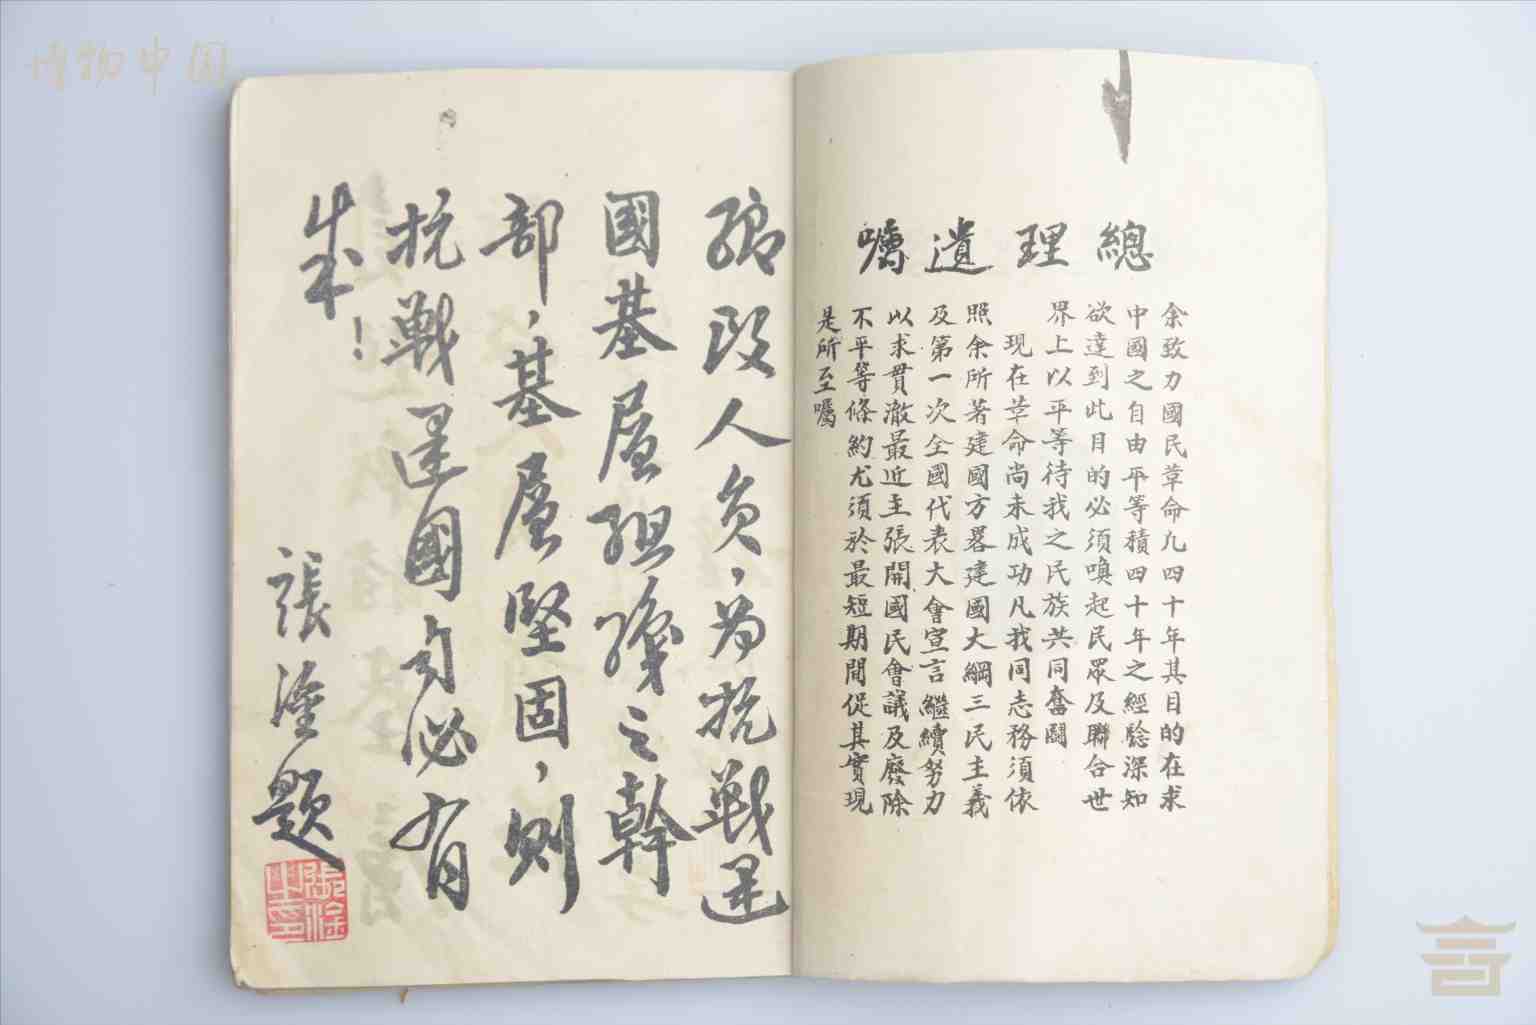 博物中国
總理遺囑
余致力國民革命凡四十年其目的在求
中國之自由平等積四十年之經驗深知
欲達到此目的必須喚起民眾及聯合世
界上以平等待我之民族共同奮鬭
現在革命尚未成功凡我同志務須依
照余所著建國方畧建國大綱三民主義
及第一次全國代表大會宣言繼續努力
以求貫澈最近主張開國民會議及廢除
不平等條約尤須於最短期間促其實現
是所至囑
人員，為抗戰建
國基層組織之幹
部，基層堅固，則
抗戰建國自必有
成！
張淦題
張淦